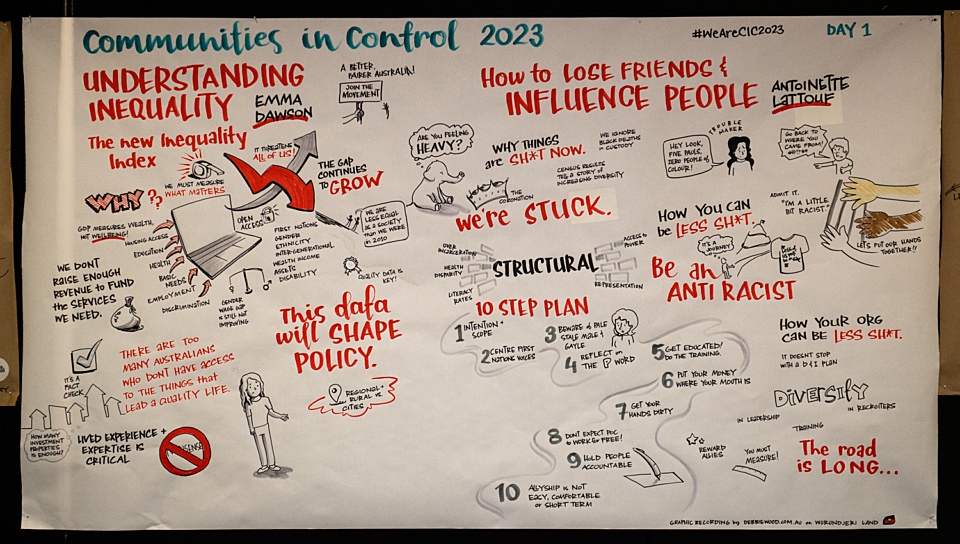 Communities in Control 2023
#WeAreCIC2023
DAY 1
UNDERSTANDING
INEQUALITY
EMMA
DAWSON
A BETTER,
FAIRER AUSTRALIA!
JOIN THE
MOVEMENT
The new Inequality
Index
IT THREATENS
ALL OF US!
THE GAP
CONTINUES
TO GROW
WE MUST MEASURE
WHAT MATTERS
WHY??
GDP MEASURES WEALTH,
NOT WELLBEING!
HOUSING ACCESS
EDUCATION
HEALTH
BASIC
NEEDS
EMPLOYMENT
DISCRIMINATION
OPEN
ACCESS
FIRST NATIONS
GENDER
ETHNICITY
INTER-GENERATIONAL
WEALTH INCOME
ASSETS
DISABILITY
WE ARE
LESS EQUAL
AS A SOCIETY
THAN WE WERE
IN 2010
QUALITY DATA IS
KEY!
GENDER
WAGE GAP
IS STILL NOT
IMPROVING
WE DON'T
RAISE ENOUGH
REVENUE TO FUND
the SERVICES
WE NEED.
This data
will SHAPE
POLICY.
IT'S A
FACT
CHECK
THERE ARE TOO
MANY AUSTRALIANS
WHO DON'T HAVE ACCESS
TO THE THINGS that
LEAD A QUALITY LIFE.
REGIONAL +
RURAL vs
CITIES
HOW MANY
INVESTMENT
PROPERTIES
IS ENOUGH?
LIVED EXPERIENCE +
EXPERTISE IS
CRITICAL
How to LOSE FRIENDS &
INFLUENCE PEOPLE
ANTOINETTE
LATTOUF
ARE YOU FEELING
HEAVY?
WHY THINGS
are SH*T NOW.
WE IGNORE
BLACK DEATHS
IN CUSTODY
CENSUS RESULTS
TELL A STORY OF
INCREASING DIVERSITY
THE
CORONATION
we're STUCK.
TROUBLE
MAKER
HEY LOOK,
FIVE PAULS,
ZERO PEOPLE of
COLOUR!
GO BACK TO
WHERE YOU
CAME FROM!
HOW YOU CAN
be LESS SH*T.
ADMIT IT.
"I'M A LITTLE
BIT RACIST."
IT'S A
JOURNEY
LET'S PUT OUR HANDS
TOGETHER!!
OVER
INCARCERATION
HEALTH
DISPARITY
LITERACY
RATES
STRUCTURAL
ACCESS to
POWER
REPRESENTATION
Be an
ANTI RACIST
10 STEP PLAN
1 INTENTION +
SCOPE
2 CENTRE FIRST
NATIONS VOICES
3 BEWARE of PALE
STALE MALE +
GAYLE
4 REFLECT on
THE P WORD
5 GET EDUCATED!
DO THE TRAINING.
6 PUT YOUR MONEY
WHERE YOUR MOUTH IS
7 GET YOUR
HANDS DIRTY
8 DON'T EXPECT POC
to WORK for FREE!
9 HOLD PEOPLE
ACCOUNTABLE
10 ALLYSHIP IS NOT
EASY, COMFORTABLE
or SHORT TERM
HOW YOUR ORG
CAN BE LESS SH*T.
IT DOESN'T STOP
with a D&I PLAN
DIVERSITY
IN LEADERSHIP
IN RECRUITERS
TRAINING
REWARD
ALLIES
YOU MUST
MEASURE!
The road
is LONG...
GRAPHIC RECORDING by DEBBIEWOOD.COM.AU on WURUNDJERI LAND